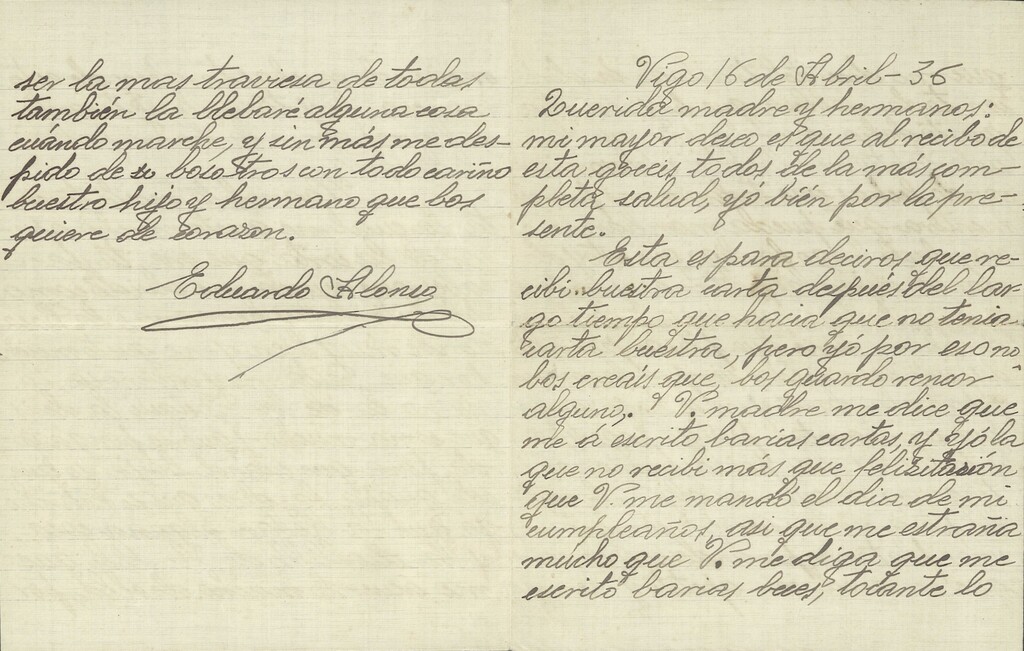 ser la mas traviesa de todas
también la llebaré alguna cosa
cuándo marche, y sin más me des-
pido de bosotros con todo cariño
buestro hijo y hermano que bos
quiere de corazon.
Eduardo Alonso
Vigo 16 de Abril - 36
Querida madre y hermanos:
mi mayor deseo es que al recibo de
esta goceis todos de la más com-
pleta salud, yó bién por la pre-
sente.
Esta es para deciros que re-
cibi buestra carta después del lar-
go tiempo que hacia que no tenia
carta buestra, pero yó por eso no
bos creaís que bos guardo rencor
alguno,. V. madre me dice que
me á escrito barias cartas, y yó la
que no recibi más que felisitasión
que V. me mandó el dia de mi
cumpleaños, asi que me estraña
mucho que V. me diga que me
escritó barias beces, tocante lo